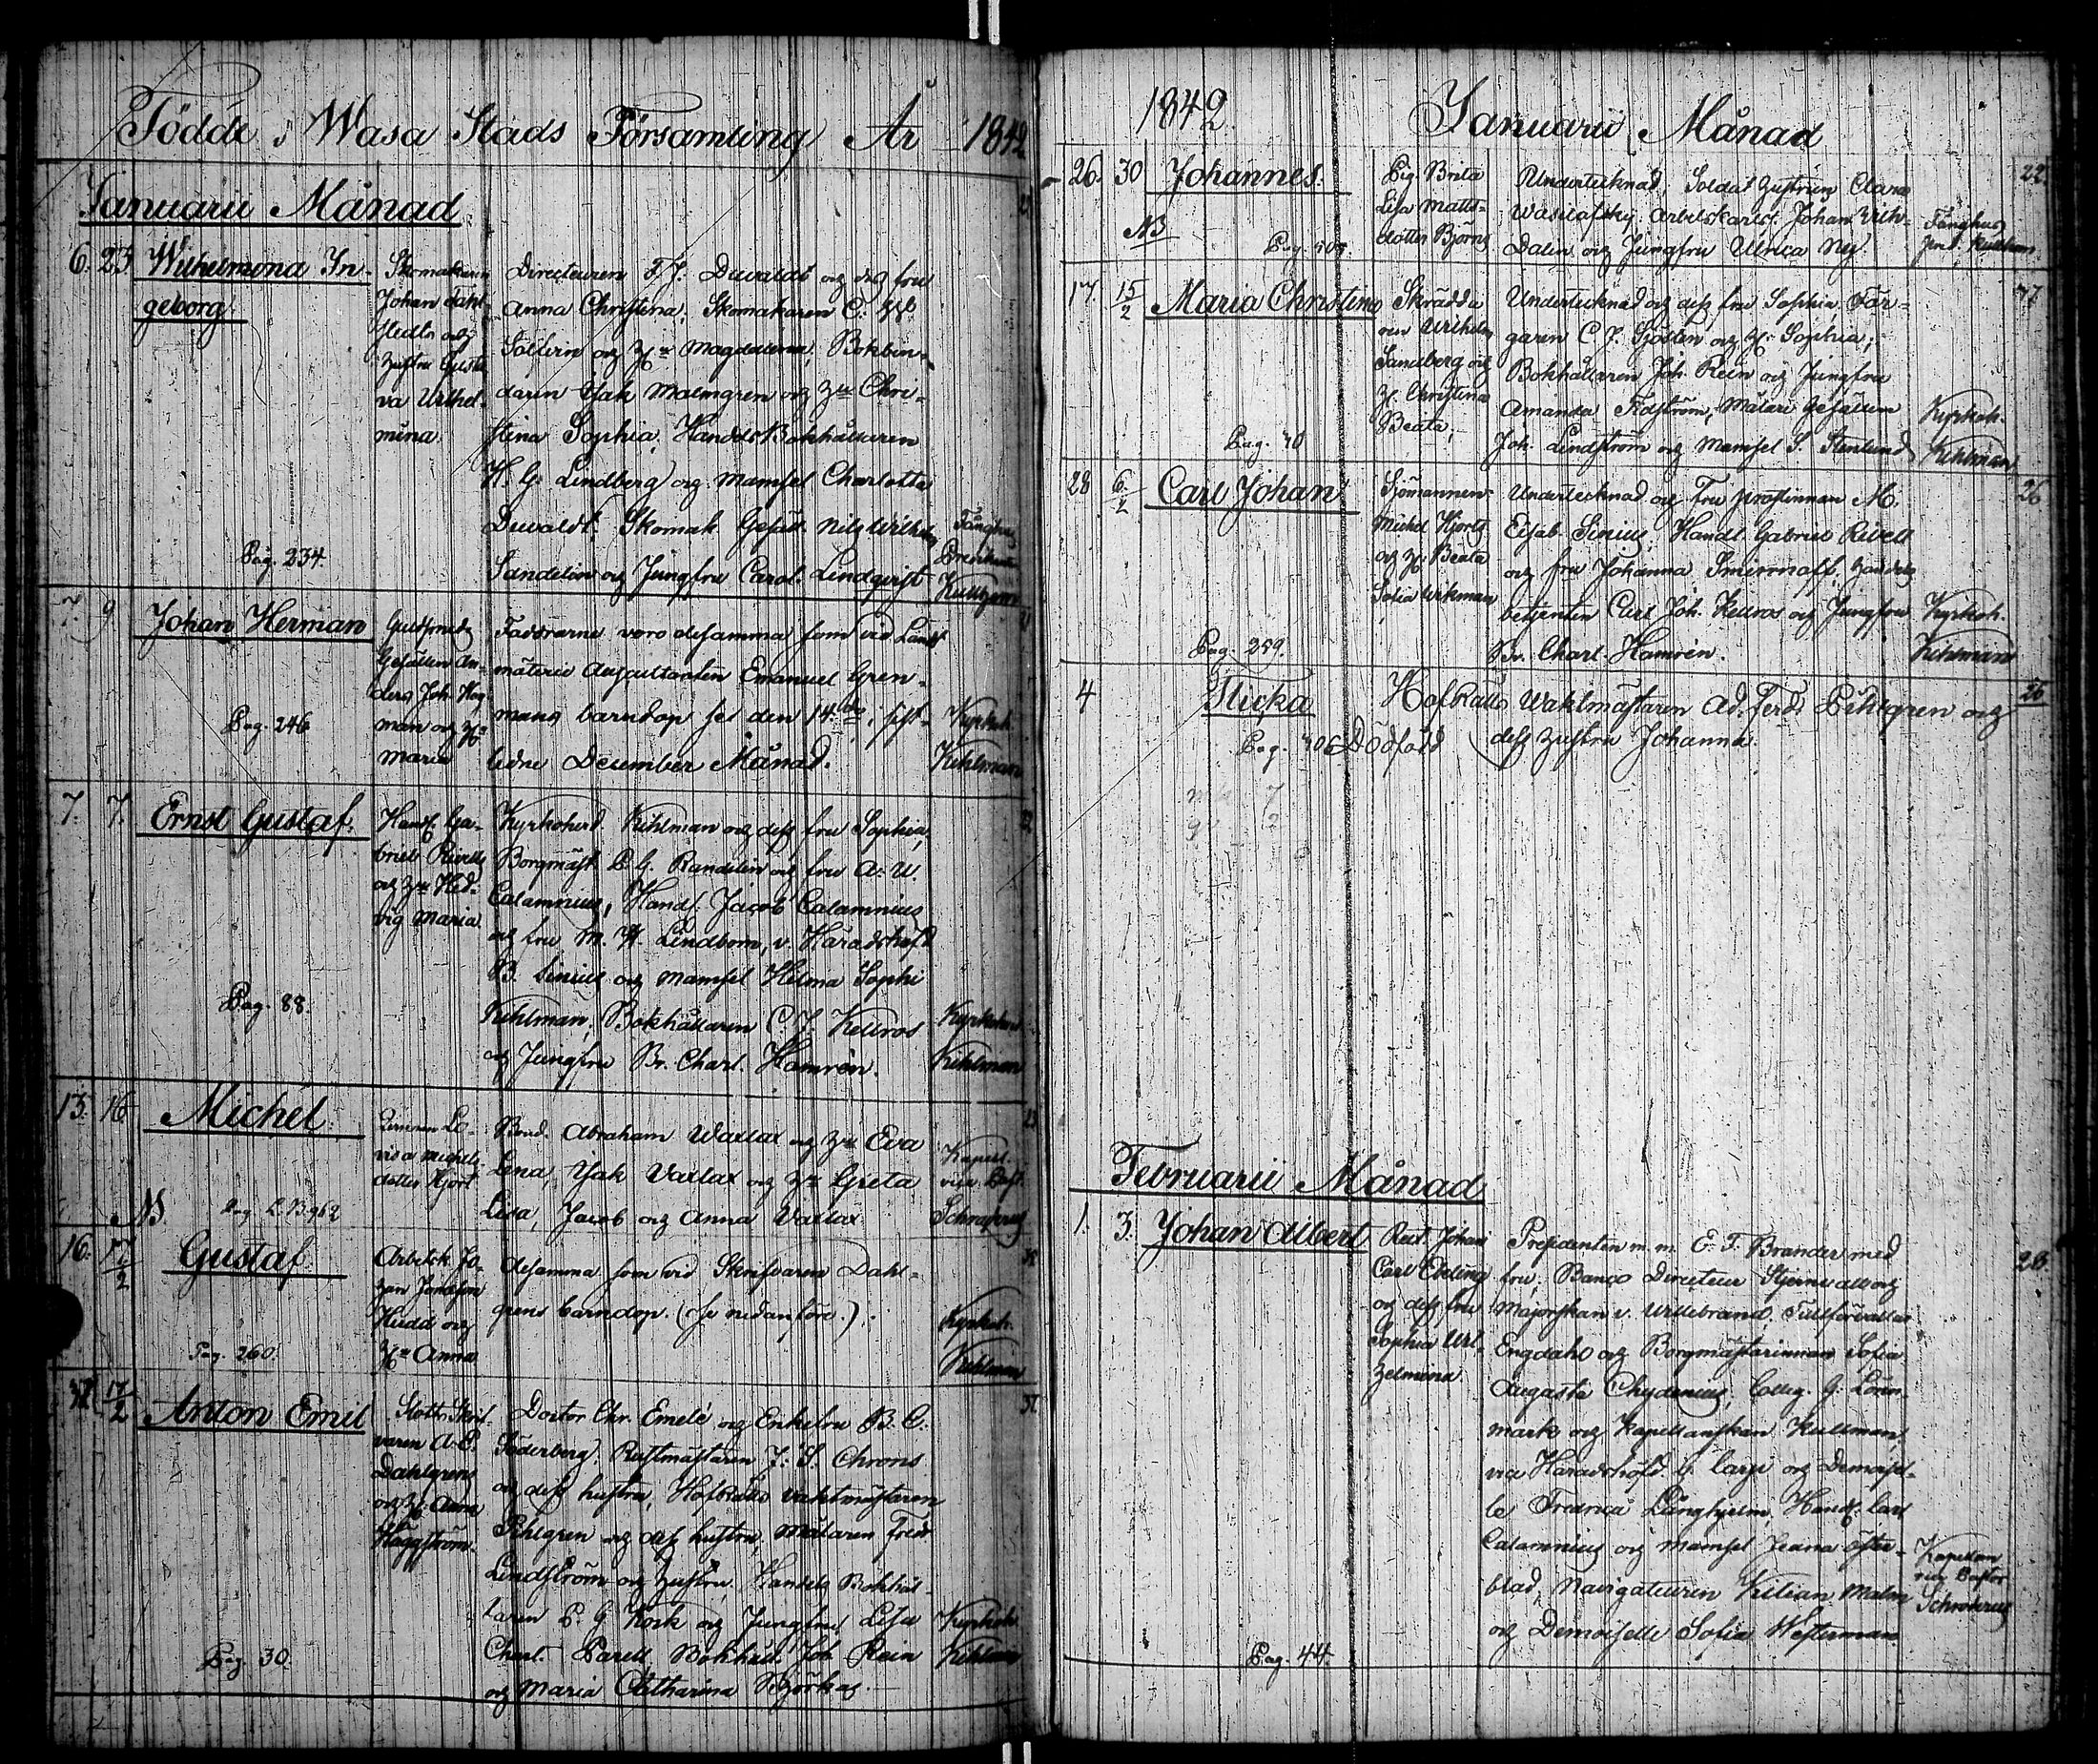 Födde i Wasa Stads Församling År 1842
Januarii Månad
6. 23 Wilhelmina In-
geborg
Pag. 234.
Skomakaren
Johan Dahl-
stedts och
hustru Gusta
va Wilhel-
mina.
Directeuren F. J. Duvaldt och dess fru
Anna Christina; Skomakaren C.
och H:u Magdalena; Bokbin-
daren Isak Malmgren och H:u Chri-
stina Sophia, Handels Bokhållaren
H. G. Lindberg och Mamsel Charlotta
Duvaldt. Skomak. Gesäll. Nils Wilhelm
Sandelin och Jungfru Carol. Lindqvist
7. 9. Johan Herman
Pag. 246
Guldsmeds
Gesällen An-
ders Joh. Hag
man och H:u
Maria
Faddrarne voro desamma som vid Landt
mäteri Auscultanten Emanuel Gren-
mans barndop se den 14:de sist-
ledne December Månad.
Kyrkoh.
Kihlman
7. 7. Ernst Gustaf.
Pag. 88.
Handl. Ga-
briel Rivells
och H:u Hed-
vig Maria
Kyrkoherd. Kihlman och dess fru Sophia,
Borgmäst. P. G. Randelin och fru A. U.
Calamnius, Handl. Jacob Calamnius
och fru M. W. Lindbom, v. Häradshöfd.
B. Sinius och Mamsel Hilma Sophi
Kihlman, Bokhållaren C. J. Keuros
och Jungfru Br. Charl. Hamrén.
Kyrkoherd
Kihlman
13. 16 Michel
NB
Lovisa Michels
dotter Hjort
Bond. Abraham Waxlax och H:u Eva
Lena, Isak Vaxlax och H:u Greta
Lisa, Jacob och Anna Vaxlax
Kapell.
vice Past.
16. 17/2 Gustaf
Pag. 260.
Arbetsk. Jo-
han
Hudd och
H:u Anna
desamma som vid Skrifvaren Dahl-
grens barndop. (se nedanföre).
Kyrkoh.
Kihlman
17/2 Anton Emil
Pag. 30.
Slotts Skrif-
varen A. E.
Dahlgrens
och H: Anna
Häggström.
Doctor Chr. Emelé och Enkefru B. C.
Söderberg, Rustmästaren J. S. Chrons
och dess hustru, Hofrätts Vaktmästaren
Pihlgren och dess hustru, Målaren Fredr.
Lindström och hustru, Handels Bokhål-
laren P. G. Kock och Jungfru Lisa
Charl. Parell Bokhåll. Joh. Rein
och Maria Catharina Björkas
Kyrkoh.
Kihlman
1842 Januarii Månad
26. 30 Johannes. 22
NB
Pig. Brita
Lisa Matts-
dotter Björns
Undertecknad, Soldat hustrun Clara
Wasilafsky, Arbetskarl. Johan Wilh.
Dalin och Jungfru Ulrica Ny.
17. 15/2 Maria Christina 77
Pag. 40
Skrädda
ren Wilhelm
Sandberg och
H. Christina
Beata;
Undertecknad och dess fru Sophia, Fär-
garen C. J. Sjösten och H. Sophia;
Bokhållaren Joh. Rein och Jungfru
Amanda Fidström, Målare Gesällen
Joh. Lindström och Mamsel S. Stenlund
Kyrkoh.
Kihlman
28 6/2 Carl Johan 26
Pag. 259.
Sjömannen
Michel Hjorts
och H: Beata
Sofia Wikman
Undertecknad och Fru Prostinnan M.
Elisab. Sinius, Handl. Gabriel Rivell
och fru Johanna Smirnoff, Handels
betjenten Carl Joh. Keuros och Jungfru
Br. Charl. Hamrén.
Kyrkoh.
Kihlman
4 Flicka 26
Dödfödd
Hofrätts Waktmästaren Ad. Ferd. Pihlgren och
dess hustru Johanna.
Februarii Månad
1. 3. Johan Albert 28
Pag. 44.
Johan
Carl Ebeling
och dess fru
Sophia Wil-
helmina
Presidenten m. m. E. F. Brander med
fru; Banco Directeur Stjernvall och
Majorskan v. Willebrand, Tullförvaltar
Engdahl och Borgmästarinnan Sofia
Augusta Chydenius, Colleg. G. Lönn-
mark och Kapellanskan Kullman,
vice Häradshöfd. G. och Demoisel-
le Fredrica Långhjelm, Handl. Carl
Calamnius och Mamsel Jeana Öster-
blad, Navigateuren Kilian Malm
och Demoiselle Sofia Westerman
Kapellan
vice Pastor